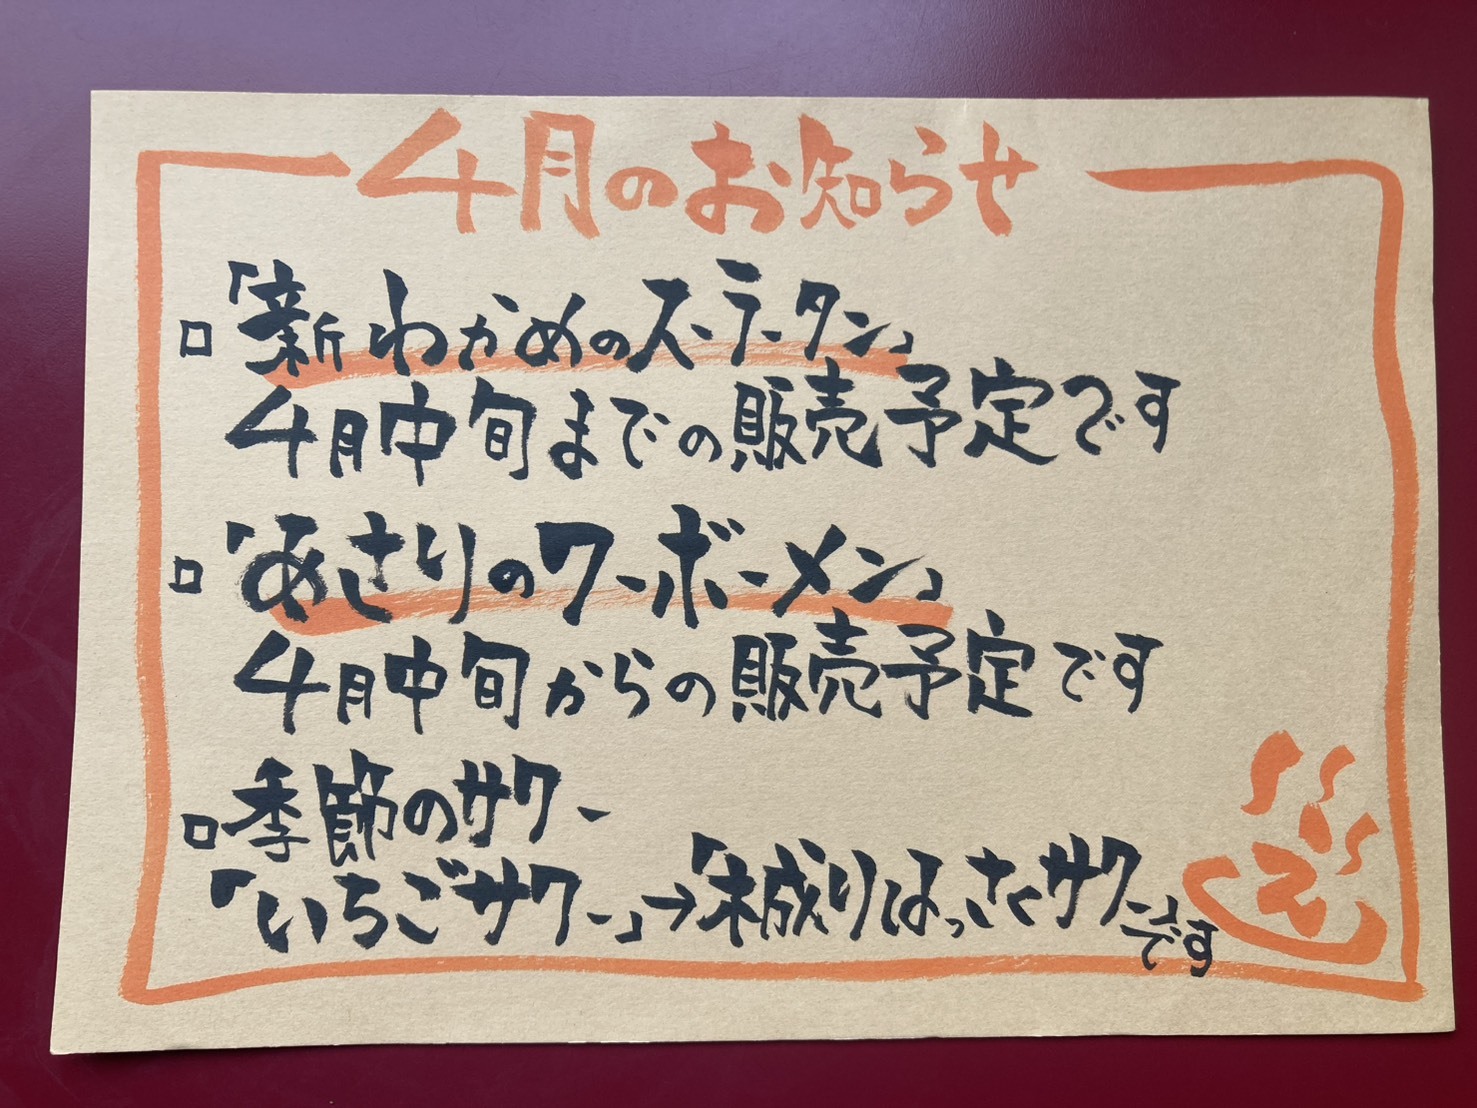 4月のお知らせ
□「新わかめのスーラータン」
4月中旬までの販売予定です
□「あさりのワーボーメン」
4月中旬からの販売予定です
□季節のサワー
「いちごサワー」→「木成りはっさくサワー」です